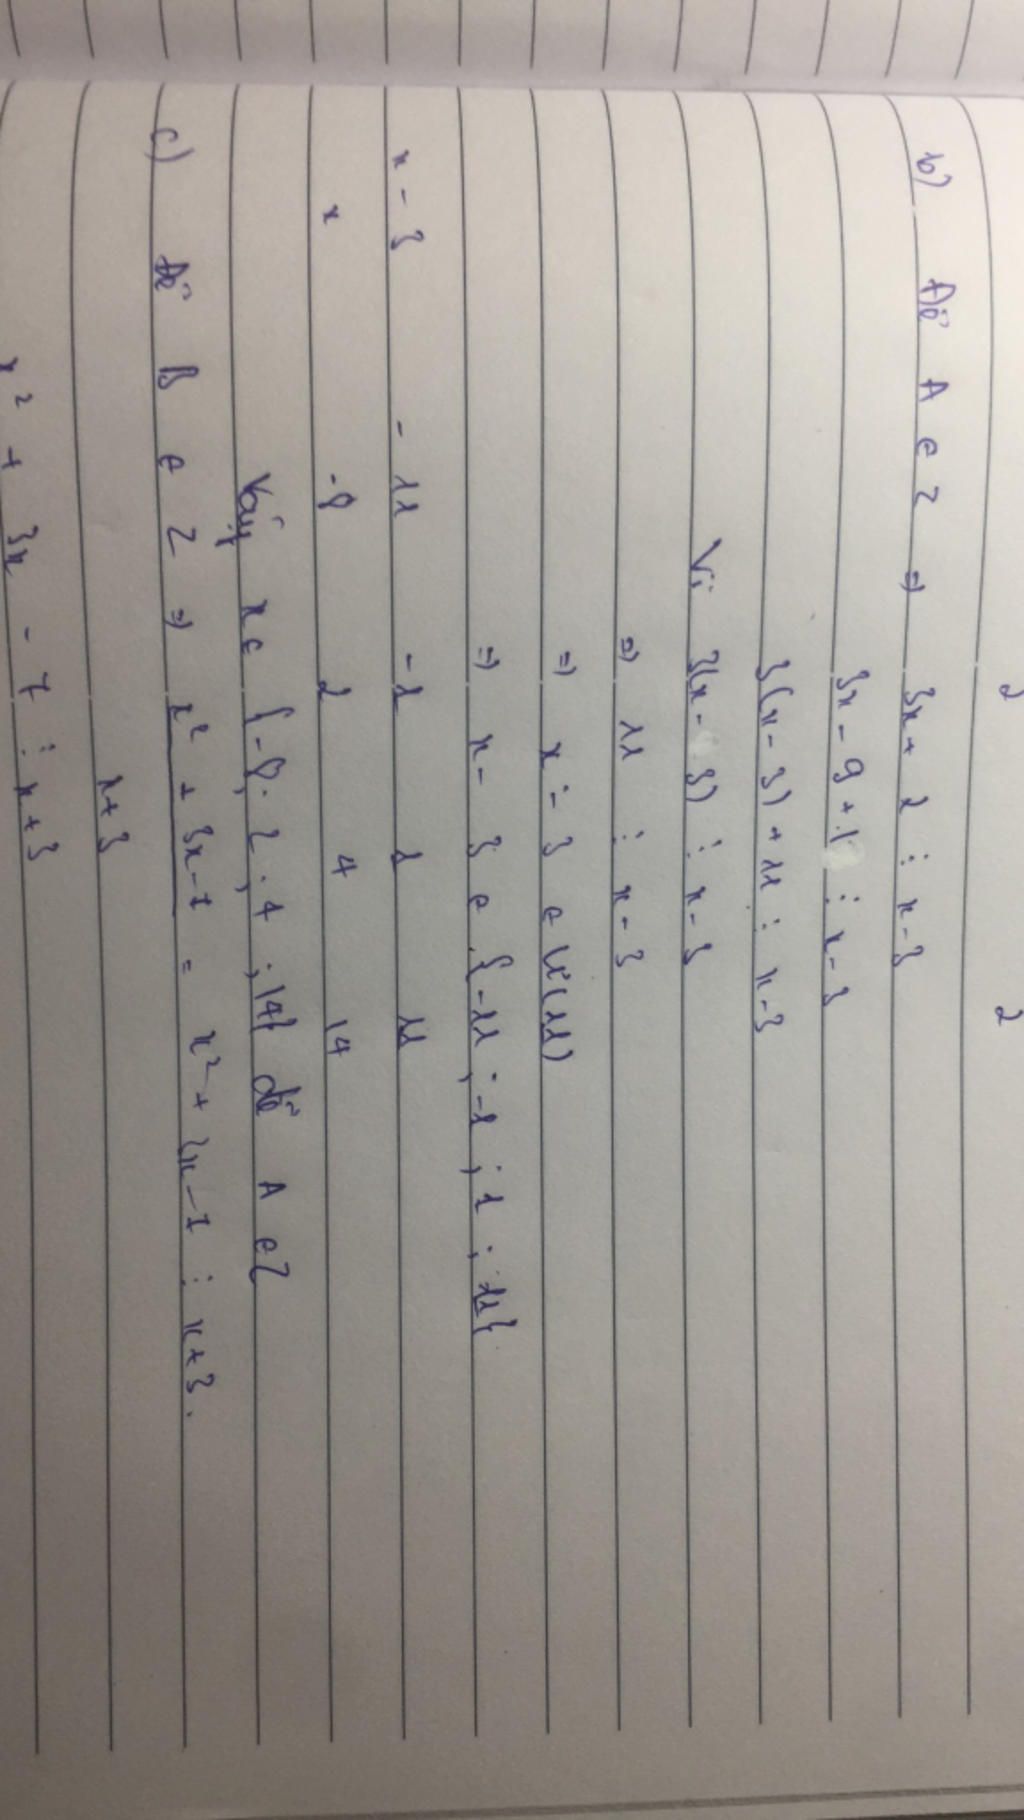 2 2
b) Để A ∈ Z => 3x + 2 ⋮ x - 3
3x - 9 + 1 ⋮ x - 3
3(x - 3) + 11 ⋮ x - 3
Vì 3(x - 3) ⋮ x - 3
=> 11 ⋮ x - 3
=> x - 3 ∈ Ư(11)
=> x - 3 ∈ {-11 ; -1 ; 1 ; 11}
x - 3 - 11 - 1 1 11
x -8 2 4 14
Vậy x ∈ {-8 ; 2 ; 4 ; 14} để A ∈ Z
c) Để B ∈ Z => x² + 3x - 7 = x² + 3x - 7 ⋮ x + 3.
x + 3
x² + 3x - 7 ⋮ x + 3